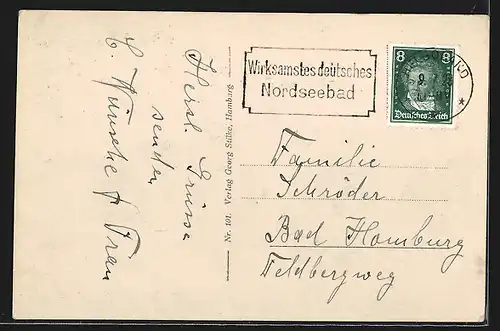 Herzl. Grüsse
senden
C. Wünsche & Frau
Nr. 101. Verlag Georg Stilke, Hamburg
Wirksamstes deutsches
Nordseebad
8 8
Deutsches Reich
Familie
Schröder
Bad Homburg
Feldbergweg